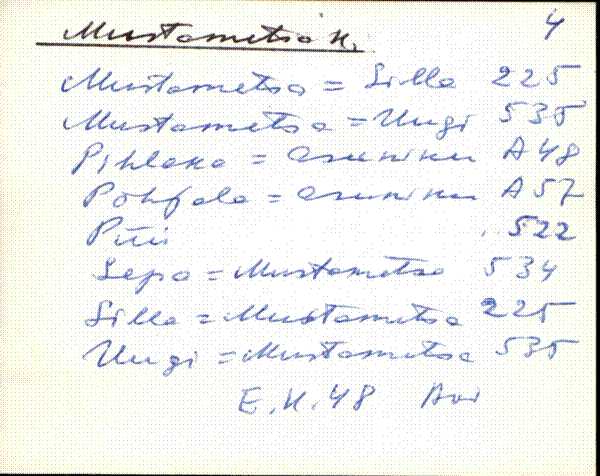 Mustametsa k. 4
Mustametsa = Silla 225
Mustametsa = Uugi 535
Pihlaka = Asuniku A48
Pohjala = Asuniku A57
Püü 522
Sepa = Mustametsa 534
Silla = Mustametsa 225
Uugi = Mustametsa 535
E.K. 48